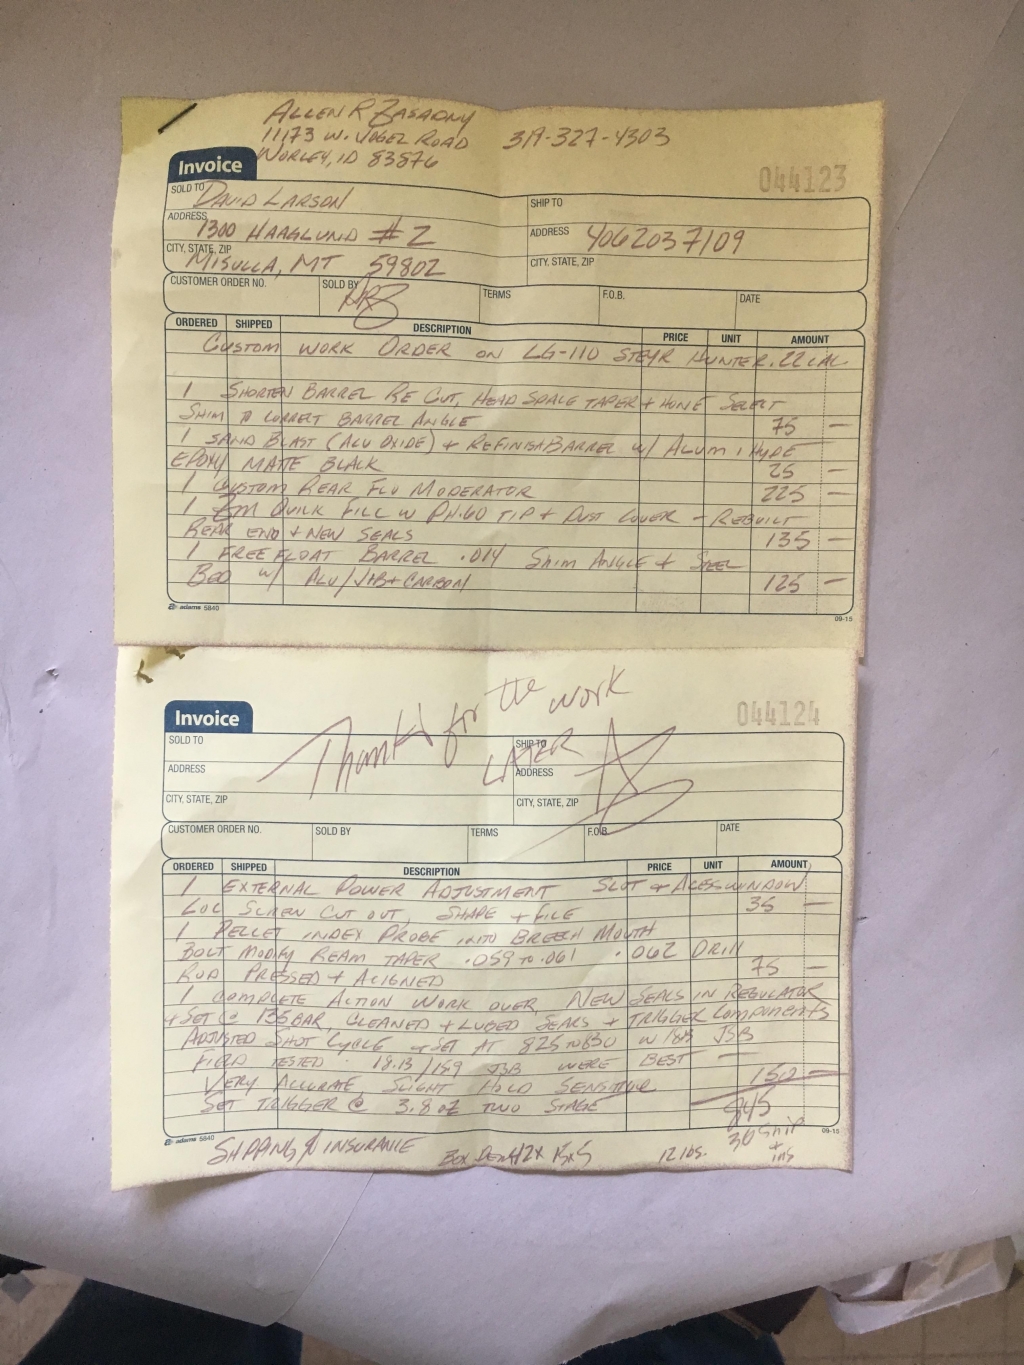 ALLEN R ZASADNY
11173 W. VOGEL ROAD 319-327-4303
WORLEY, ID 83876
Invoice 044123
SOLD TO DAVID LARSON SHIP TO
ADDRESS 1300 HAAGLUND #2 ADDRESS 4062037109
CITY, STATE, ZIP MISULLA, MT 59802 CITY, STATE, ZIP
CUSTOMER ORDER NO. SOLD BY ARZ TERMS F.O.B. DATE
ORDERED SHIPPED DESCRIPTION PRICE UNIT AMOUNT
CUSTOM WORK ORDER ON LG-110 STEYR HUNTER .22 CAL
1 SHORTEN BARREL RE CUT, HEAD SPACE TAPER + HONE SELECT
SHIM TO CORRECT BARREL ANGLE 75 —
1 SAND BLAST (ALU OXIDE) + REFINISH BARREL W/ ALUM
EPOXY MATTE BLACK 25 —
1 CUSTOM REAR FLU MODERATOR 225 —
1 QUIK FILL W PN.60 TIP + DUST COVER - REBUILT
REAR END + NEW SEALS 135 —
1 FREE FLOAT BARREL .014 SHIM ANGLE + STEEL
BED W/ ALU/ +CARBON 125 —
adams 5840 09-15
Invoice 044124
Thanks for the work
LATER
SOLD TO SHIP TO
ADDRESS ADDRESS
CITY, STATE, ZIP CITY, STATE, ZIP
CUSTOMER ORDER NO. SOLD BY TERMS F.O.B. DATE
ORDERED SHIPPED DESCRIPTION PRICE UNIT AMOUNT
1 EXTERNAL POWER ADJUSTMENT SLOT + ACESS WINDOW
LOC SCREW CUT OUT, SHAPE + FILE 35 —
1 PELLET INDEX PROBE INTO BREECH MOUTH
BOLT MODIFY REAM TAPER .059 TO .061 .062 DRILL
ROD PRESSED + ALIGNED 75 —
1 COMPLETE ACTION WORK OVER, NEW SEALS IN REGULATOR
+ SET @ 135 BAR, CLEANED + LUBED SEARS + TRIGGER COMPONENTS
ADJUSTED SHOT CYCLE + SET AT 825 TO 830 W/ JSB
FIELD TESTED. 18.13 /159 JSB WERE BEST —
VERY ACCURATE, SLIGHT HOLD SENSITIVE 150 —
SET TRIGGER @ 3.8 OZ TWO STAGE 845
adams 5840 30 Ship + ins 09-15
SHPPING / INSURANCE BOX 12 lbs.